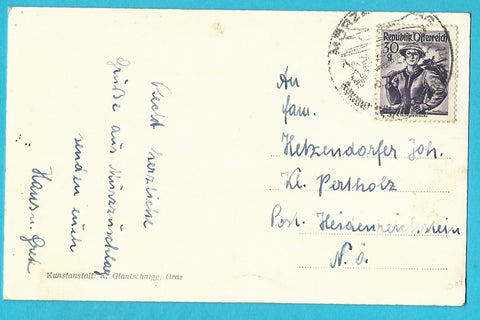 Recht herzliche
Grüße aus Mürzzuschlag
senden euch
Hans u. Gret
Kunstanstalt: A. Glantschnigg, Graz
MÜRZZ
Republik Österreich
30
g
An
Fam.
Hetzendorfer Joh.
Kl. Pertholz
Post. Heidenreichstein
N. Ö.